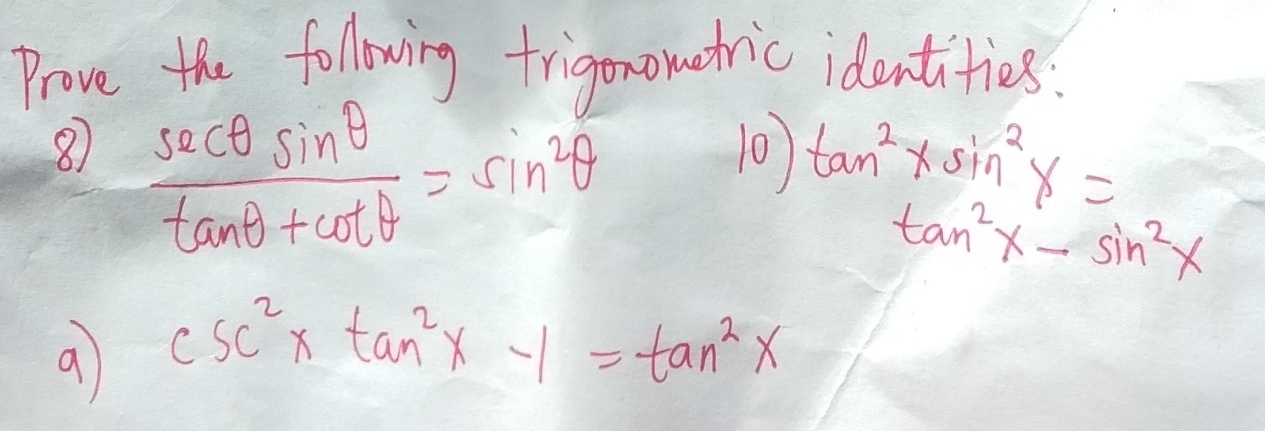 Prove the following trigonometric identities:
8) secθ sinθ / tanθ + cotθ = sin²θ
10) tan²x sin²x =
tan²x - sin²x
9) csc²x tan²x - 1 = tan²x